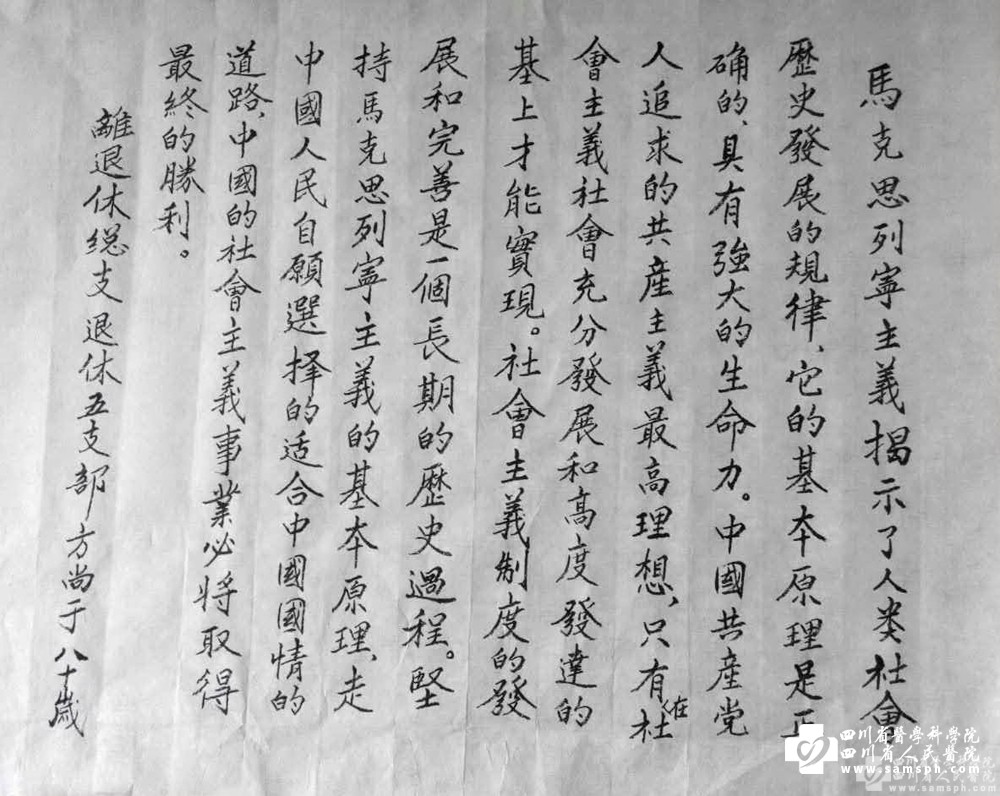 馬克思列寧主義揭示了人类社會
歷史發展的規律、它的基本原理是正
确的、具有強大的生命力。中國共産党
人追求的共産主義最高理想，只有在社
會主義社會充分發展和高度發達的
基上才能實現。社會主義制度的發
展和完善是一個長期的歷史過程。堅
持馬克思列寧主義的基本原理、走
中國人民自願選择的适合中國國情的
道路、中國的社會主義事業必將取得
最終的勝利。
離退休総支退休五支部方尚于八十歲
四川省醫學科學院
四川省人民醫院
www.samsph.com
四川省人民醫院
www.samsph.com